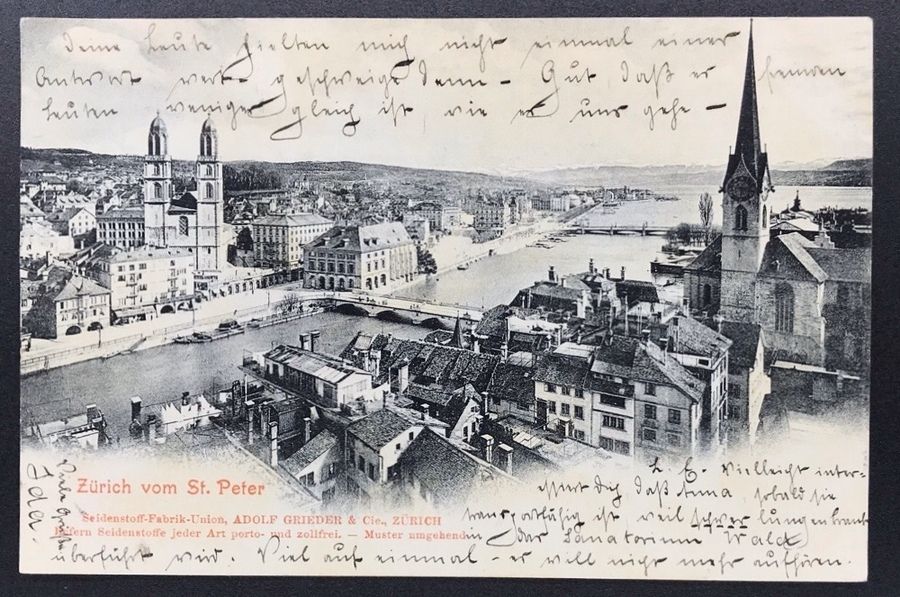 Deine Leute hielten mich nicht einmal einer
Antwort wert, geschweige denn – Gut daß es fremden
Leuten weniger gleich ist, wie es uns gehe –
Zürich vom St. Peter
Seidenstoff-Fabrik-Union, ADOLF GRIEDER & Cie., ZÜRICH
liefern Seidenstoffe jeder Art porto- und zollfrei. – Muster umgehend.
L. E. Vielleicht inter-
essiert Dich daß Anna, sobald sie
transportfähig ist, weil schwer lungenkrank
in das Sanatorium Wald
überführt wird. Viel auf einmal – es will nicht mehr aufhören.
Ida.